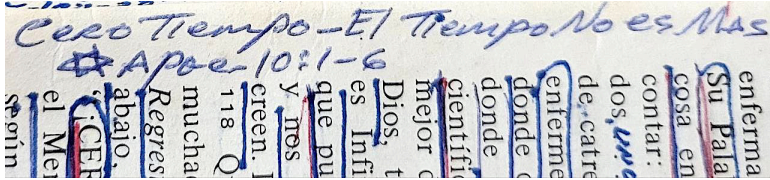 Cero Tiempo - El Tiempo No es Mas
☆ Apoc - 10:1-6
enferma
Su Pala
cosa en
contar:
dos, una
de catre
enferme
donde c
donde
científi
mejor c
Dios, t
es Infi
que pu
y nos
creen. I
118 Q
muchac
Regres
abajo,
"¡CER
el Mer
según